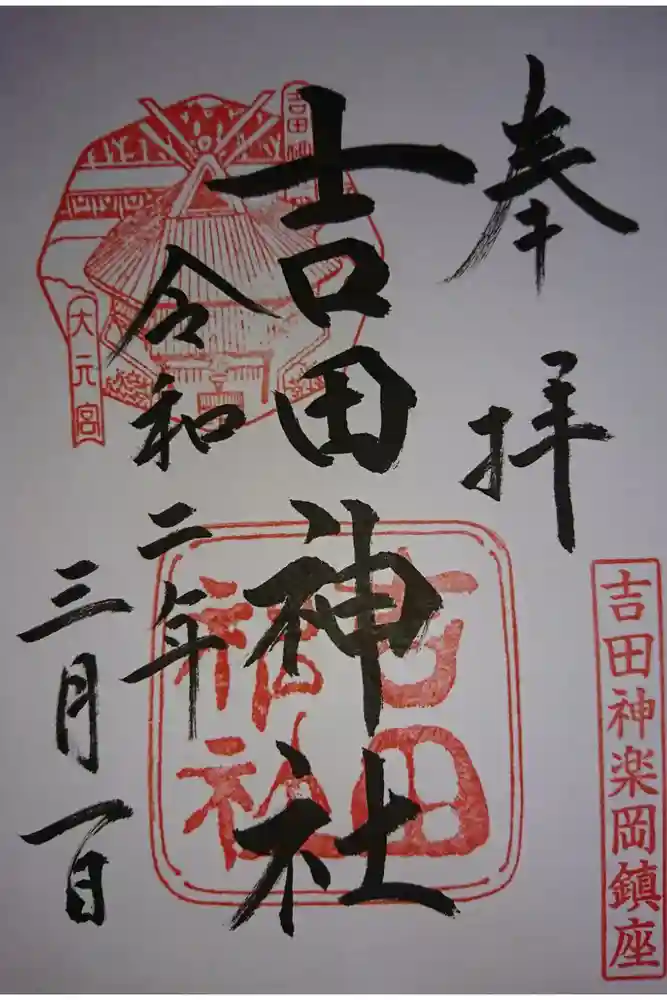 奉拝
吉田神楽岡鎮座
吉田神社
大元宮
吉田神社
令和二年
三月一日